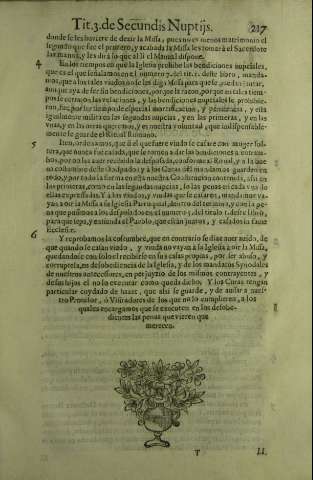 Tit.3. de Secundis Nuptijs. 217
donde se les ha de dezir la Missa, pues no es menos matrimonio el
segundo que fue el primero, y acabada la Missa les tomarà el Sacerdote
las manos, y les dirà lo que alli el Manual dispone.
4 En los tiempos en que la Iglesia prohibe las bendiciones nupciales,
que es el que señalamos en el numero 7. del tit. 1. deste libro, manda-
mos, que a los tales viudos no se les diga Missa para que se puedan juntar,
aunque aya de ser sin bendiciones, por que la razon, porque en tales tiem-
pos se cerraron las velaciones, y las bendiciones nupciales se prohibie-
ron, fue, por ser tiempo de especial mortificacion, y penitencia, y ella
igualmente milita en las segundas nupcias, y en las primeras, y en las
vnas, y en las otras queremos, y es nuestra voluntad, que indispensable-
mente se guarde el Ritual Romano.
5 Item, ordenamos, que si el que fuere viudo se casare con muger sol-
tera, que nunca fue casada, que se tornen a dar las bendiciones a entram-
bos, por no las auer recibido la desposada, conforme al Ritual, y a la que
es costumbre deste Obispado: y a los Curas les mandamos guarden en
todo, y por todo la forma en esta nuestra Constitucion contenida, assi en
las primeras, como en las segundas nupcias, so las penas en cada vna de
ellas expressadas. Y a los viudos, y viudas que se casaren, mandamos va-
yan a oir la Missa a la Iglesia Parroquial, dentro del termino, y con la pe-
na que pusimos a los desposados en el numero 1. del titulo 1. deste libro,
para que sepa, y entienda el Pueblo, que estàn juntos, y casados in facie
Ecclesiæ.
6 Y reprobamos la costumbre, que en contrario se dize auer auido, de
que quando se casan viudo, y viuda no vayan a la Iglesia à oir la Missa,
quedandose con solo el recibirse en sus casas propias, por ser abuso, y
corruptela, en desobediencia de la Iglesia, y de los mandatos Synodales
de nuestros antecessores, en perjuyzio de los mismos contrayentes, y
de sus hijos el no lo executar como queda dicho. Y los Curas tengan
particular cuydado de hazer, que assi se guarde, y de auisar a nues-
tro Prouisor, ò Visitadores de los que no lo cumplieren, a los
quales encargamos que se executen en los desobe-
dientes las penas que vieren que
merecen.
T Ll.